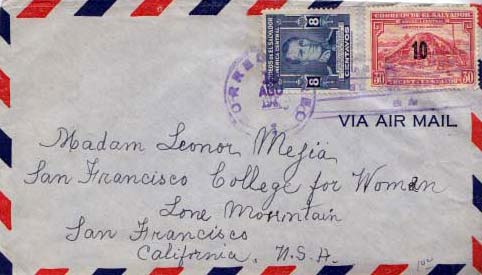 CORREOS DE EL SALVADOR
AMERICA CENTRAL
8 8
CENTAVOS
CORREOS DE EL SALVADOR
AMERICA CENTRAL
10
60 60
CORREO
VIA AIR MAIL
Madam Leonor Mejía
San Francisco College for Woman
Lone Mountain
San Francisco
California, U.S.A.